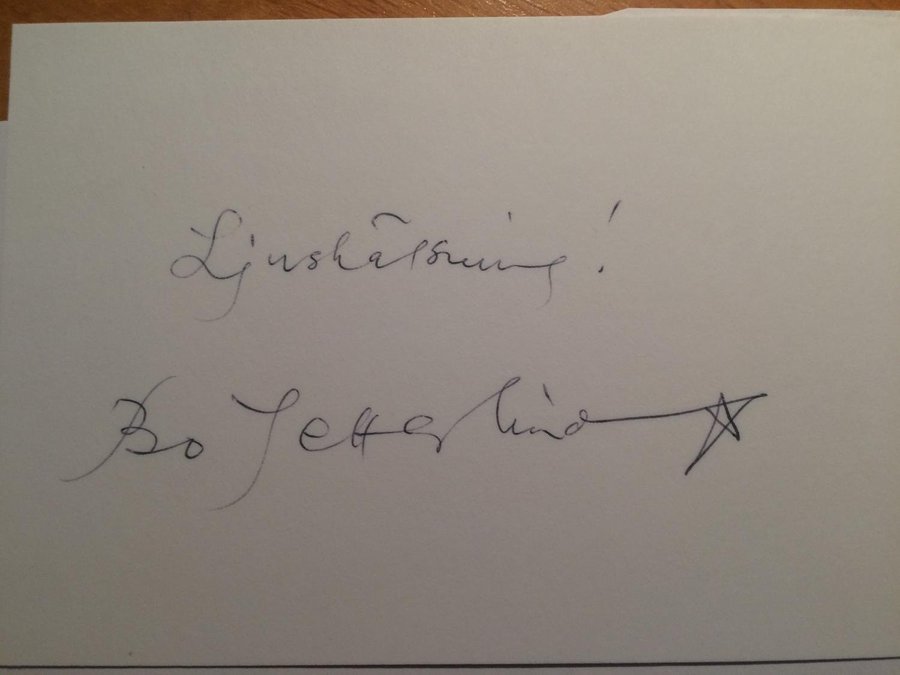 Ljushälsning!
Bo Setterlind